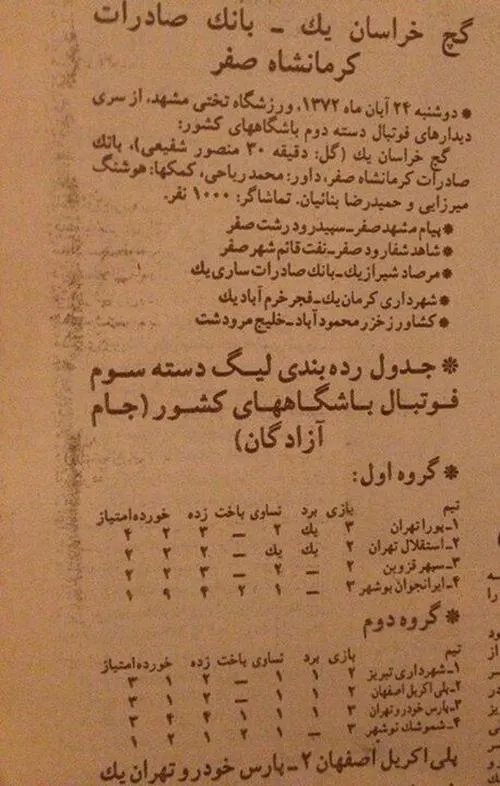 گچ خراسان یك ـ بانك صادرات
کرمانشاه صفر
* دوشنبه ۲۴ آبان ماه ۱۳۷۲، ورزشگاه تختی مشهد، از سری
دیدارهای فوتبال دسته دوم باشگاههای کشور:
گچ خراسان یك (گل: دقیقه ۳۰ منصور شفیعی)، بانك
صادرات کرمانشاه صفر، داور: محمد ریاحی، کمكها: هوشنگ
میرزایی و حمیدرضا بنائیان. تماشاگر: ۱۰۰۰ نفر.
* پیام مشهد صفر ـ سپیدرود رشت صفر
* شاهد شفارود صفر ـ نفت قائم شهر صفر
* مرصاد شیراز یك ـ بانك صادرات ساری یك
* شهرداری کرمان یك ـ فجر خرم آباد یك
* کشاورز خزر محمود آباد ـ خلیج مرودشت
* جدول رده بندی لیگ دسته سوم
فوتبال باشگاههای کشور (جام
آزادگان)
* گروه اول:
تیم بازی برد تساوی باخت زده خورده امتیاز
۱ـ پورا تهران ۳ یك ۲ ـ ۳ ۲ ۴
۲ـ استقلال تهران ۲ یك یك ـ ۲ ۲ ۲
۳ـ سپهر قزوین ۲ ـ ۲ ـ ۳ ۲ ۲
۴ـ ایرانجوان بوشهر ۳ ـ ۱ ۲ ۴ ۹ ۱
* گروه دوم
تیم بازی برد تساوی باخت زده خورده امتیاز
۱ـ شهرداری تبریز ۲ ۱ ۱ ـ ۲ ۱ ۳
۲ـ پلی اکریل اصفهان ۲ ۱ ۱ ـ ۲ ۱ ۳
۳ـ پارس خودرو تهران ۳ ۱ ۱ ۱ ۴ ۴ ۳
۴ـ شموشك نوشهر ۳ ـ ۱ ۲ ۱ ۲ ۱
پلی اکریل اصفهان ۲ ـ پارس خودرو تهران یك